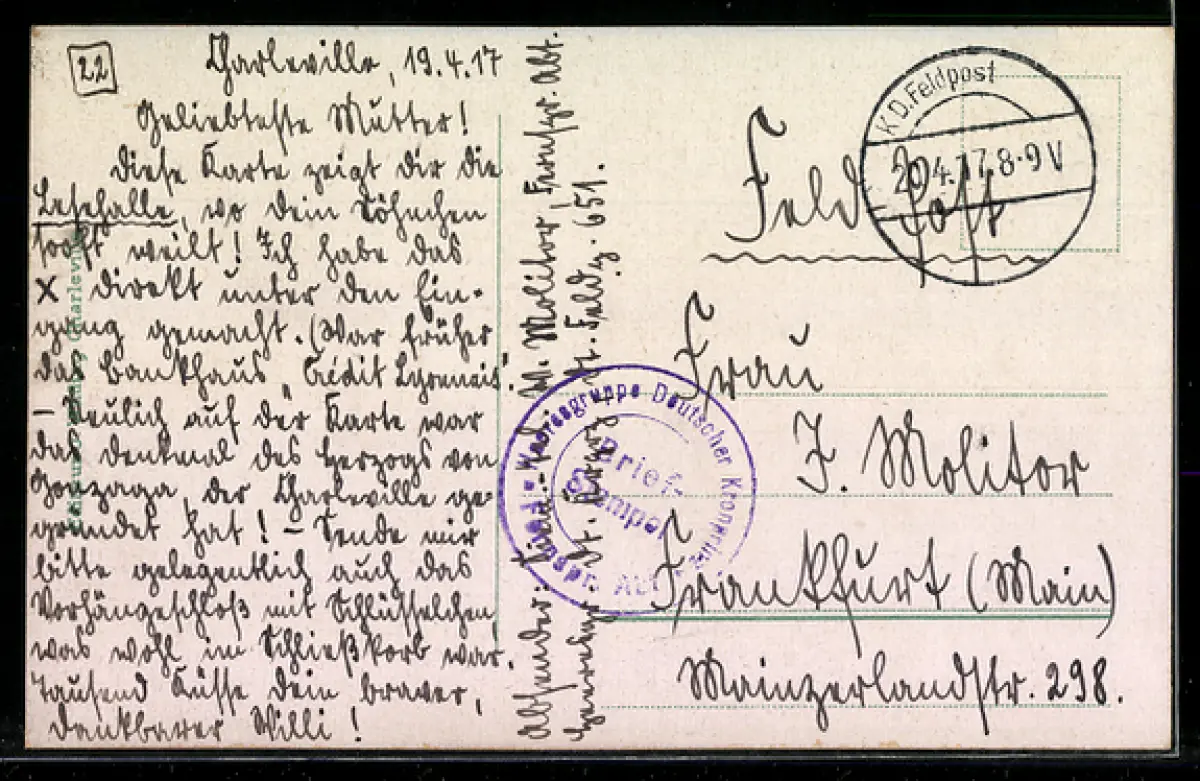 22
Charleville, 19.4.17
Geliebteste Mutter!
Diese Karte zeigt dir die
Lesehalle, wo dein Söhnchen
so oft weilt! Ich habe das
X direkt unter den Ein-
gang gemacht. (War früher
das Bankhaus „Crédit Lyonnais“.
– Neulich auf der Karte war
das Denkmal des Herzogs von
Gonzaga, der Charleville ge-
gründet hat! – Sende mir
bitte gelegentlich auch das
Vorhängeschloß mit Schlüsselchen
was wohl im Schließkorb war.
Tausend Küsse dein braver,
dankbarer Willi!
Absender: W. Molitor, Fernspr. Abt.
Dt. Feldp. 651.
K.D. Feldpost
20.4.17.8-9V
Feldpost
Heeresgruppe Deutscher Kronprinz
Brief-
Stempel
Frau
J. Molitor
Frankfurt (Main)
Mainzerlandstr. 298.